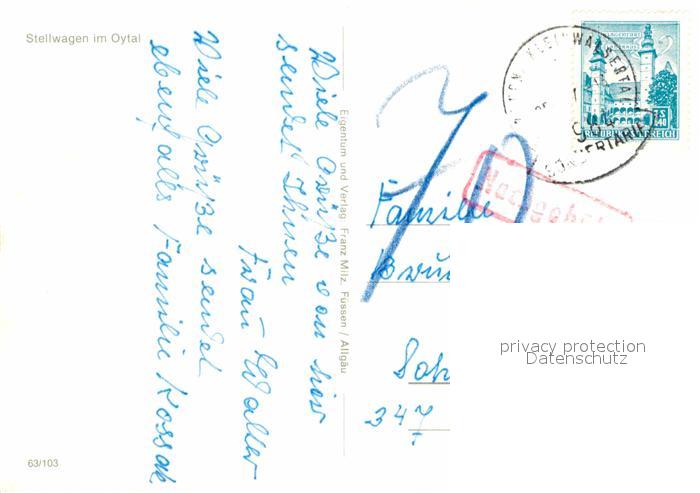 Stellwagen im Oytal
Viele Grüße von hier
sendet Ihnen
Frau Walter
Viele Grüße sendet
ebenfalls Familie Kossak
Eigentum und Verlag Franz Milz, Füssen / Allgäu
70
KLEINWALSERTAL
SONDERTARIF
S 2.40
REPUBLIK ÖSTERREICH
Familie
347
privacy protection
Datenschutz
63/103